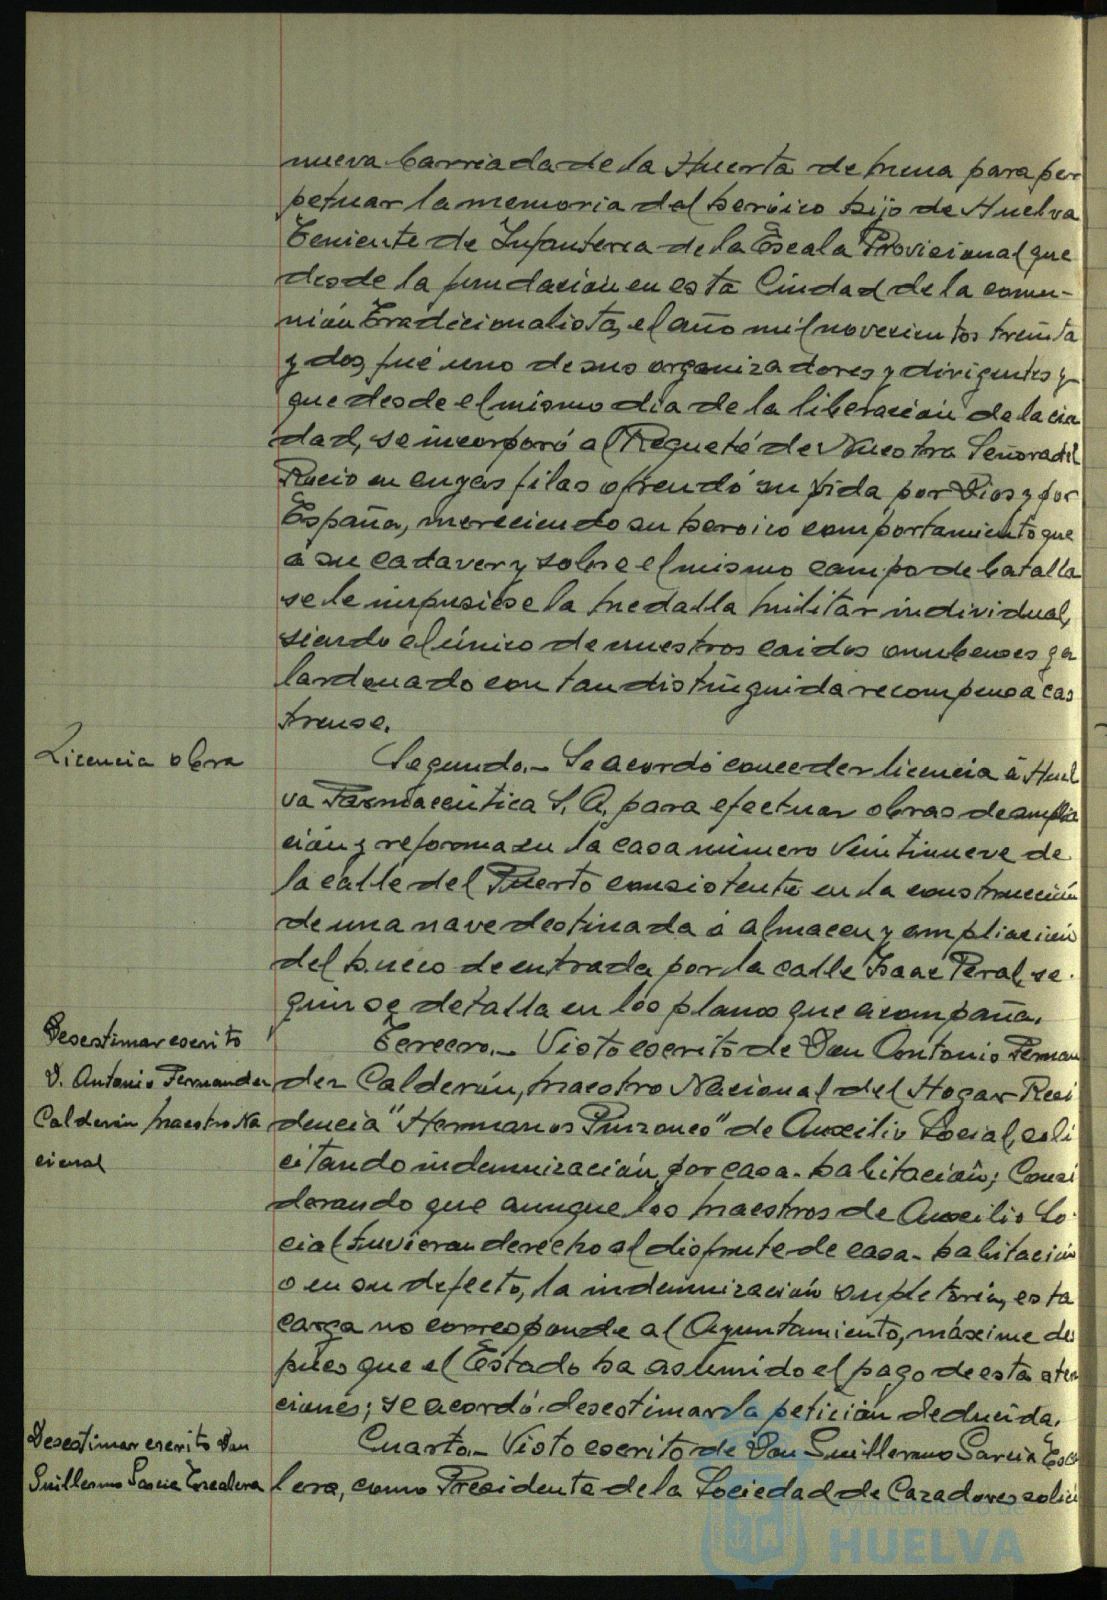 nueva barriada de la Huerta de Mena para per
petuar la memoria del heróico hijo de Huelva
Teniente de Infanteria de la Escala Provisional que
desde la fundación en esta Ciudad de la comu-
nión Tradicionalista, el año mil novecientos treinta
y dos, fué uno de sus organizadores y dirigentes y
que desde el mismo dia de la liberación de la ciu
dad, se incorporó al Requeté de Nuestra Señora del
Rocio en cuyas filas ofrendó su vida por Dios y por
España, mereciendo su heroico comportamiento que
a su cadaver y sobre el mismo campo de batalla
se le impusiese la Medalla Militar individual,
siendo el único de nuestros caidos onubenses ga
lardonado con tan distinguida recompensa cas
trense.
Licencia obra
Segundo.- Se acordó conceder licencia á Huel
va Farmaceútica S. A. para efectuar obras de amplia
ción y reforma en la casa número veintinueve de
la calle del Puerto consistente en la construcción
de una nave destinada á almacen y ampliación
del hueco de entrada por la calle Isaac Peral, se-
gún se detalla en los planos que acompaña.
Desestimar escrito
D. Antonio Fernandez
Calderón Maestro Na
cional
Tercero.- Visto escrito de Don Antonio Fernan
dez Calderón, Maestro Nacional del Hogar Resi
dencia "Hermanos Pinzones" de Auxilio Social, soli
citando indemnización por casa-habitación; Consi
derando que aunque los Maestros de Auxilio So-
cial tuvieran derecho al disfrute de casa-habitación
o en su defecto, la indemnización supletoria, esta
carga no corresponde al Ayuntamiento, máxime des
pues que el Estado ha asumido el pago de esta aten
ciones; se acordó desestimar la petición deducida.
Desestimar escrito Don
Guillermo Garcia Escalera
Cuarto.- Visto escrito de Don Guillermo Garcia Esca
lera, como Presidente de la Sociedad de Cazadores solici
Ayuntamiento de
HUELVA